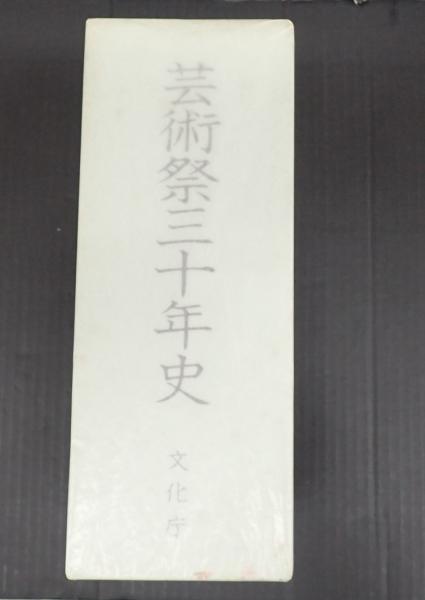 芸術祭三十年史
文化庁